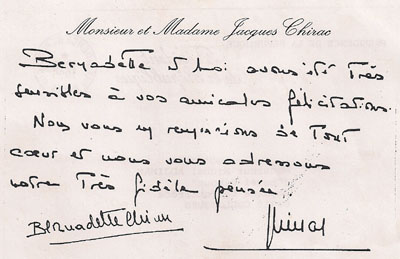 Monsieur et Madame Jacques Chirac
Bernadette et moi avons été très
sensibles à vos amicales félicitations.
Nous vous en remercions de tout
cœur et nous vous adressons
notre très fidèle pensée.
Bernadette Chirac
JChirac